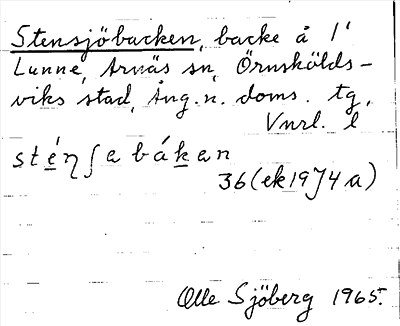 Stensjöbacken, backe å 1'
Lunne, Arnäs sn, Örnskölds-
viks stad, Ång. n. doms. tg,
Vnrl. l
sténʃabákan
36 (ek 19 J4 a)
Olle Sjöberg 1965.